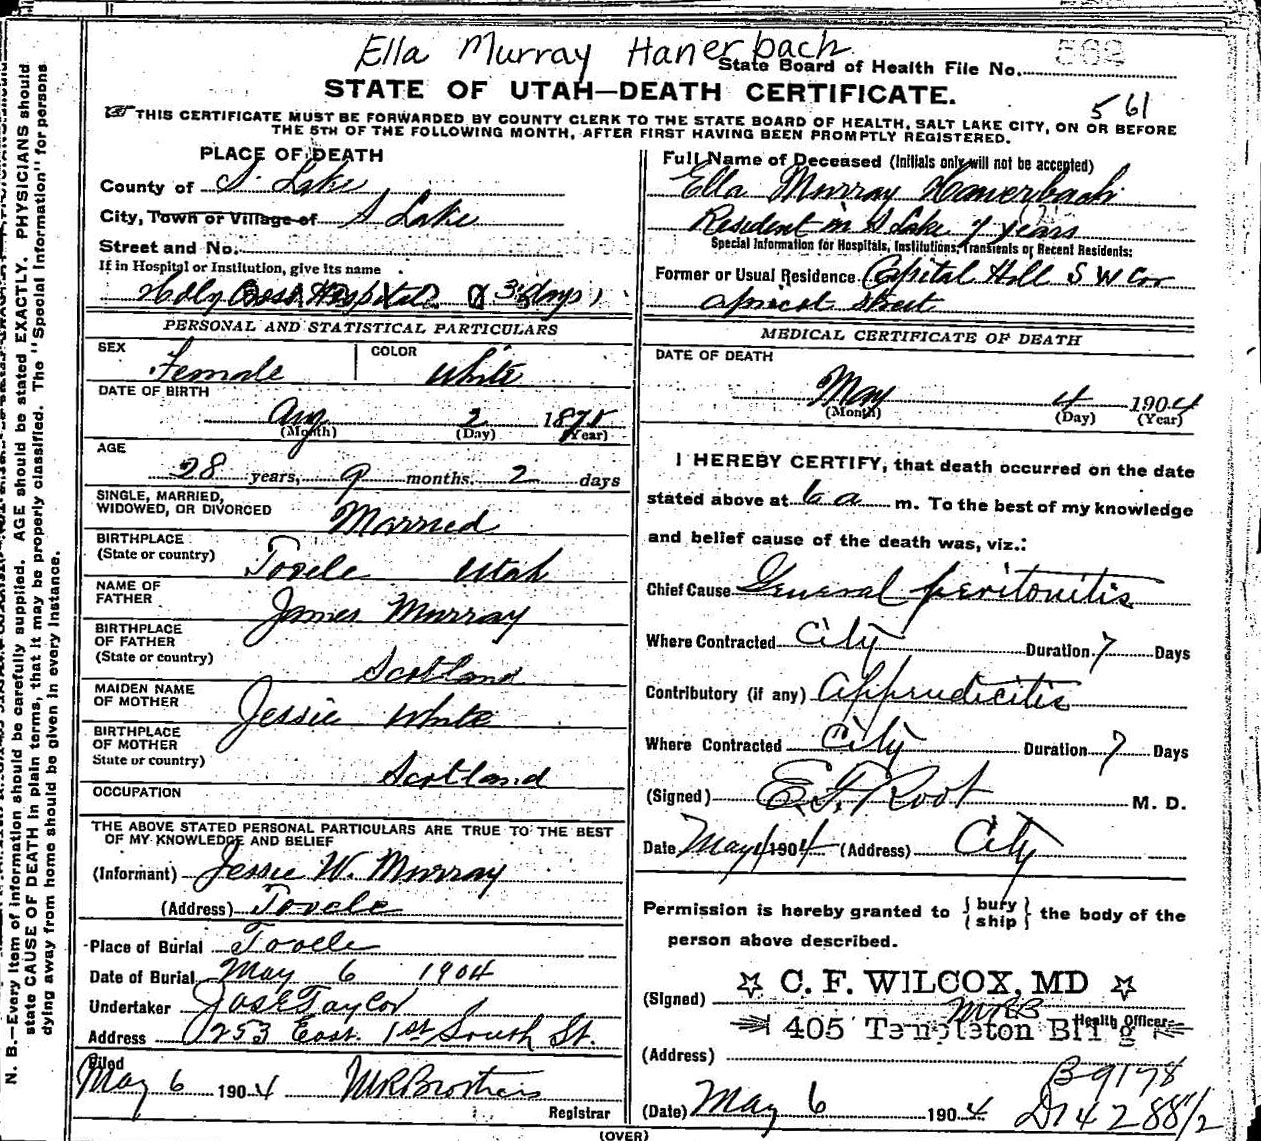 Ella Murray Hanerbach
State Board of Health File No. 562
STATE OF UTAH—DEATH CERTIFICATE.
561
THIS CERTIFICATE MUST BE FORWARDED BY COUNTY CLERK TO THE STATE BOARD OF HEALTH, SALT LAKE CITY, ON OR BEFORE
THE 5TH OF THE FOLLOWING MONTH, AFTER FIRST HAVING BEEN PROMPTLY REGISTERED.
PLACE OF DEATH
County of S. Lake
City, Town or Village of S Lake
Street and No.
If in Hospital or Institution, give its name
Holy Cross Hospital 3 days
PERSONAL AND STATISTICAL PARTICULARS
SEX Female COLOR White
DATE OF BIRTH
Aug 2 1875
(Month) (Day) (Year)
AGE
28 years, 9 months. 2 days
SINGLE, MARRIED,
WIDOWED, OR DIVORCED Married
BIRTHPLACE
(State or country) Tooele Utah
NAME OF
FATHER James Murray
BIRTHPLACE
OF FATHER
(State or country) Scotland
MAIDEN NAME
OF MOTHER Jessie White
BIRTHPLACE
OF MOTHER
State or country) Scotland
OCCUPATION
THE ABOVE STATED PERSONAL PARTICULARS ARE TRUE TO THE BEST
OF MY KNOWLEDGE AND BELIEF
(Informant) Jessie W. Murray
(Address) Tooele
Place of Burial Tooele
Date of Burial May 6 1904
Undertaker Jos E Taylor
Address 253 East. 1st South St.
Filed
May 6 1904
Registrar
Full Name of Deceased (Initials only will not be accepted)
Ella Murray Hanerbach
Resident in S Lake 7 years
Special Information for Hospitals, Institutions, Transients or Recent Residents:
Former or Usual Residence Capital Hill S W Cor
Apricot Street
MEDICAL CERTIFICATE OF DEATH
DATE OF DEATH
May 4 1904
(Month) (Day) (Year)
I HEREBY CERTIFY, that death occurred on the date
stated above at 6 a m. To the best of my knowledge
and belief cause of the death was, viz.:
Chief Cause General peritonitis
Where Contracted City Duration 7 Days
Contributory (if any) Appendicitis
Where Contracted City Duration 7 Days
(Signed) E. F. Root M. D.
Date May 4 1904 (Address) City
Permission is hereby granted to { bury ship } the body of the
person above described.
(Signed) C. F. WILCOX, MD
Health Officer
405 Templeton Bl'g
(Address)
(Date) May 6 1904
B9178
D14288½
(OVER)
N. B.—Every item of information should be carefully supplied. AGE should be stated EXACTLY. PHYSICIANS should
state CAUSE OF DEATH in plain terms, that it may be properly classified. The "Special Information" for persons
dying away from home should be given in every instance.